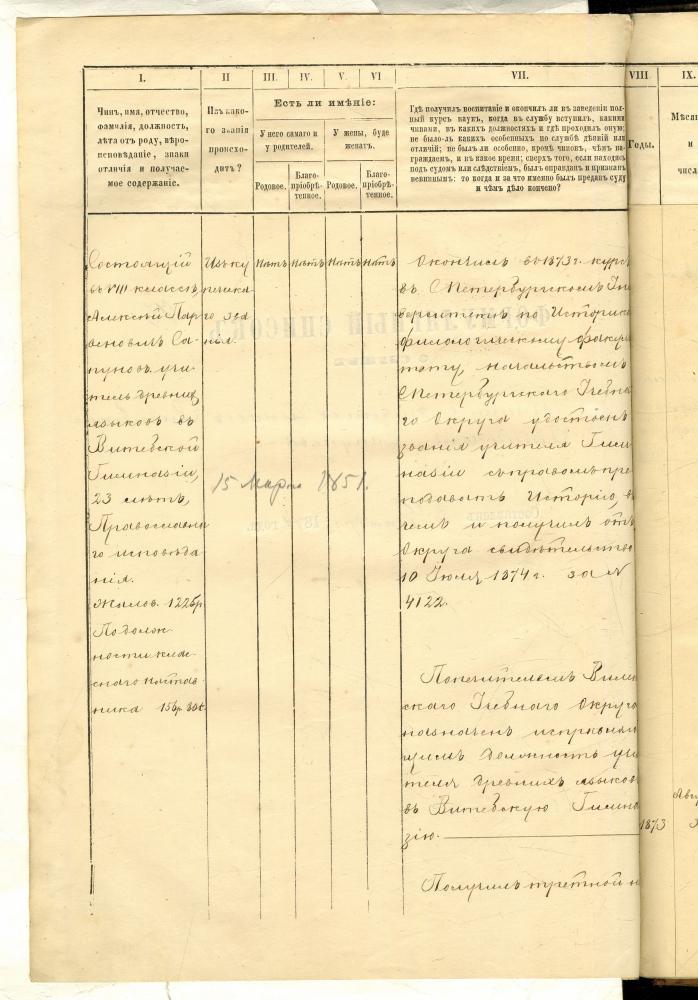 I.
Чинъ, имя, отчество,
фамилія, должность,
лѣта отъ роду, вѣро-
исповѣданіе, знаки
отличія и получае-
мое содержаніе.
II
Изъ како-
го званія
происхо-
дитъ?
III.
IV.
V.
VI
Есть ли имѣніе:
У него самаго и
у родителей.
У жены, буде
женатъ.
Родовое.
Благо-
пріобрѣ-
тенное.
Родовое.
Благо-
пріобрѣ-
тенное.
VII.
Гдѣ получилъ воспитаніе и окончилъ ли въ заведеніи пол-
ный курсъ наукъ, когда въ службу вступилъ, какими
чинами, въ какихъ должностяхъ и гдѣ проходилъ оную;
не было-ль какихъ особенныхъ по службѣ дѣяній или
отличій; не былъ ли особенно, кромѣ чиновъ, чѣмъ на-
граждаемъ, и въ какое время; сверхъ того, если находясь
подъ судомъ или слѣдствіемъ, былъ оправданъ и признанъ
невиннымъ: то когда и за что именно былъ преданъ суду
и чѣмъ дѣло кончено?
VIII
Годы.
IX.
Мѣся
и
числ
Состоящій
въ VIII классѣ,
Алексѣй Пар-
ѳеновичъ Са-
пуновъ, учи-
тель древних
языковъ въ
Витебской
Гимназіи,
23 лѣтъ,
Православна
го исповѣда
нія.
Жалов. 1225р
По долж-
ности клас-
снаго настав-
ника 156р 80к
Изъ ку
печеска
го зва
нія.
15 Марта 1851.
Нѣтъ
Нѣтъ
Нѣтъ
Нѣтъ
Окончилъ въ 1873 г. курсъ
въ С.Петербургскомъ Уни
верситетѣ по Историко
филологическому факуль
тету, начальствомъ
С.Петербургскаго Учебна
го Округа удостоенъ
званія учителя Гим
назіи съ правомъ пре
подавать Исторію, в
чемъ и получилъ отъ
Округа свидѣтельство
10 Іюля 1874 г. за №
4122.
Попечителемъ Вилен
скаго Учебнаго Округа
назначенъ исправляю
щимъ должность учи
теля древнихъ языков
въ Витебскую Гимна
зію.
1873
Авгу
Получилъ третной н